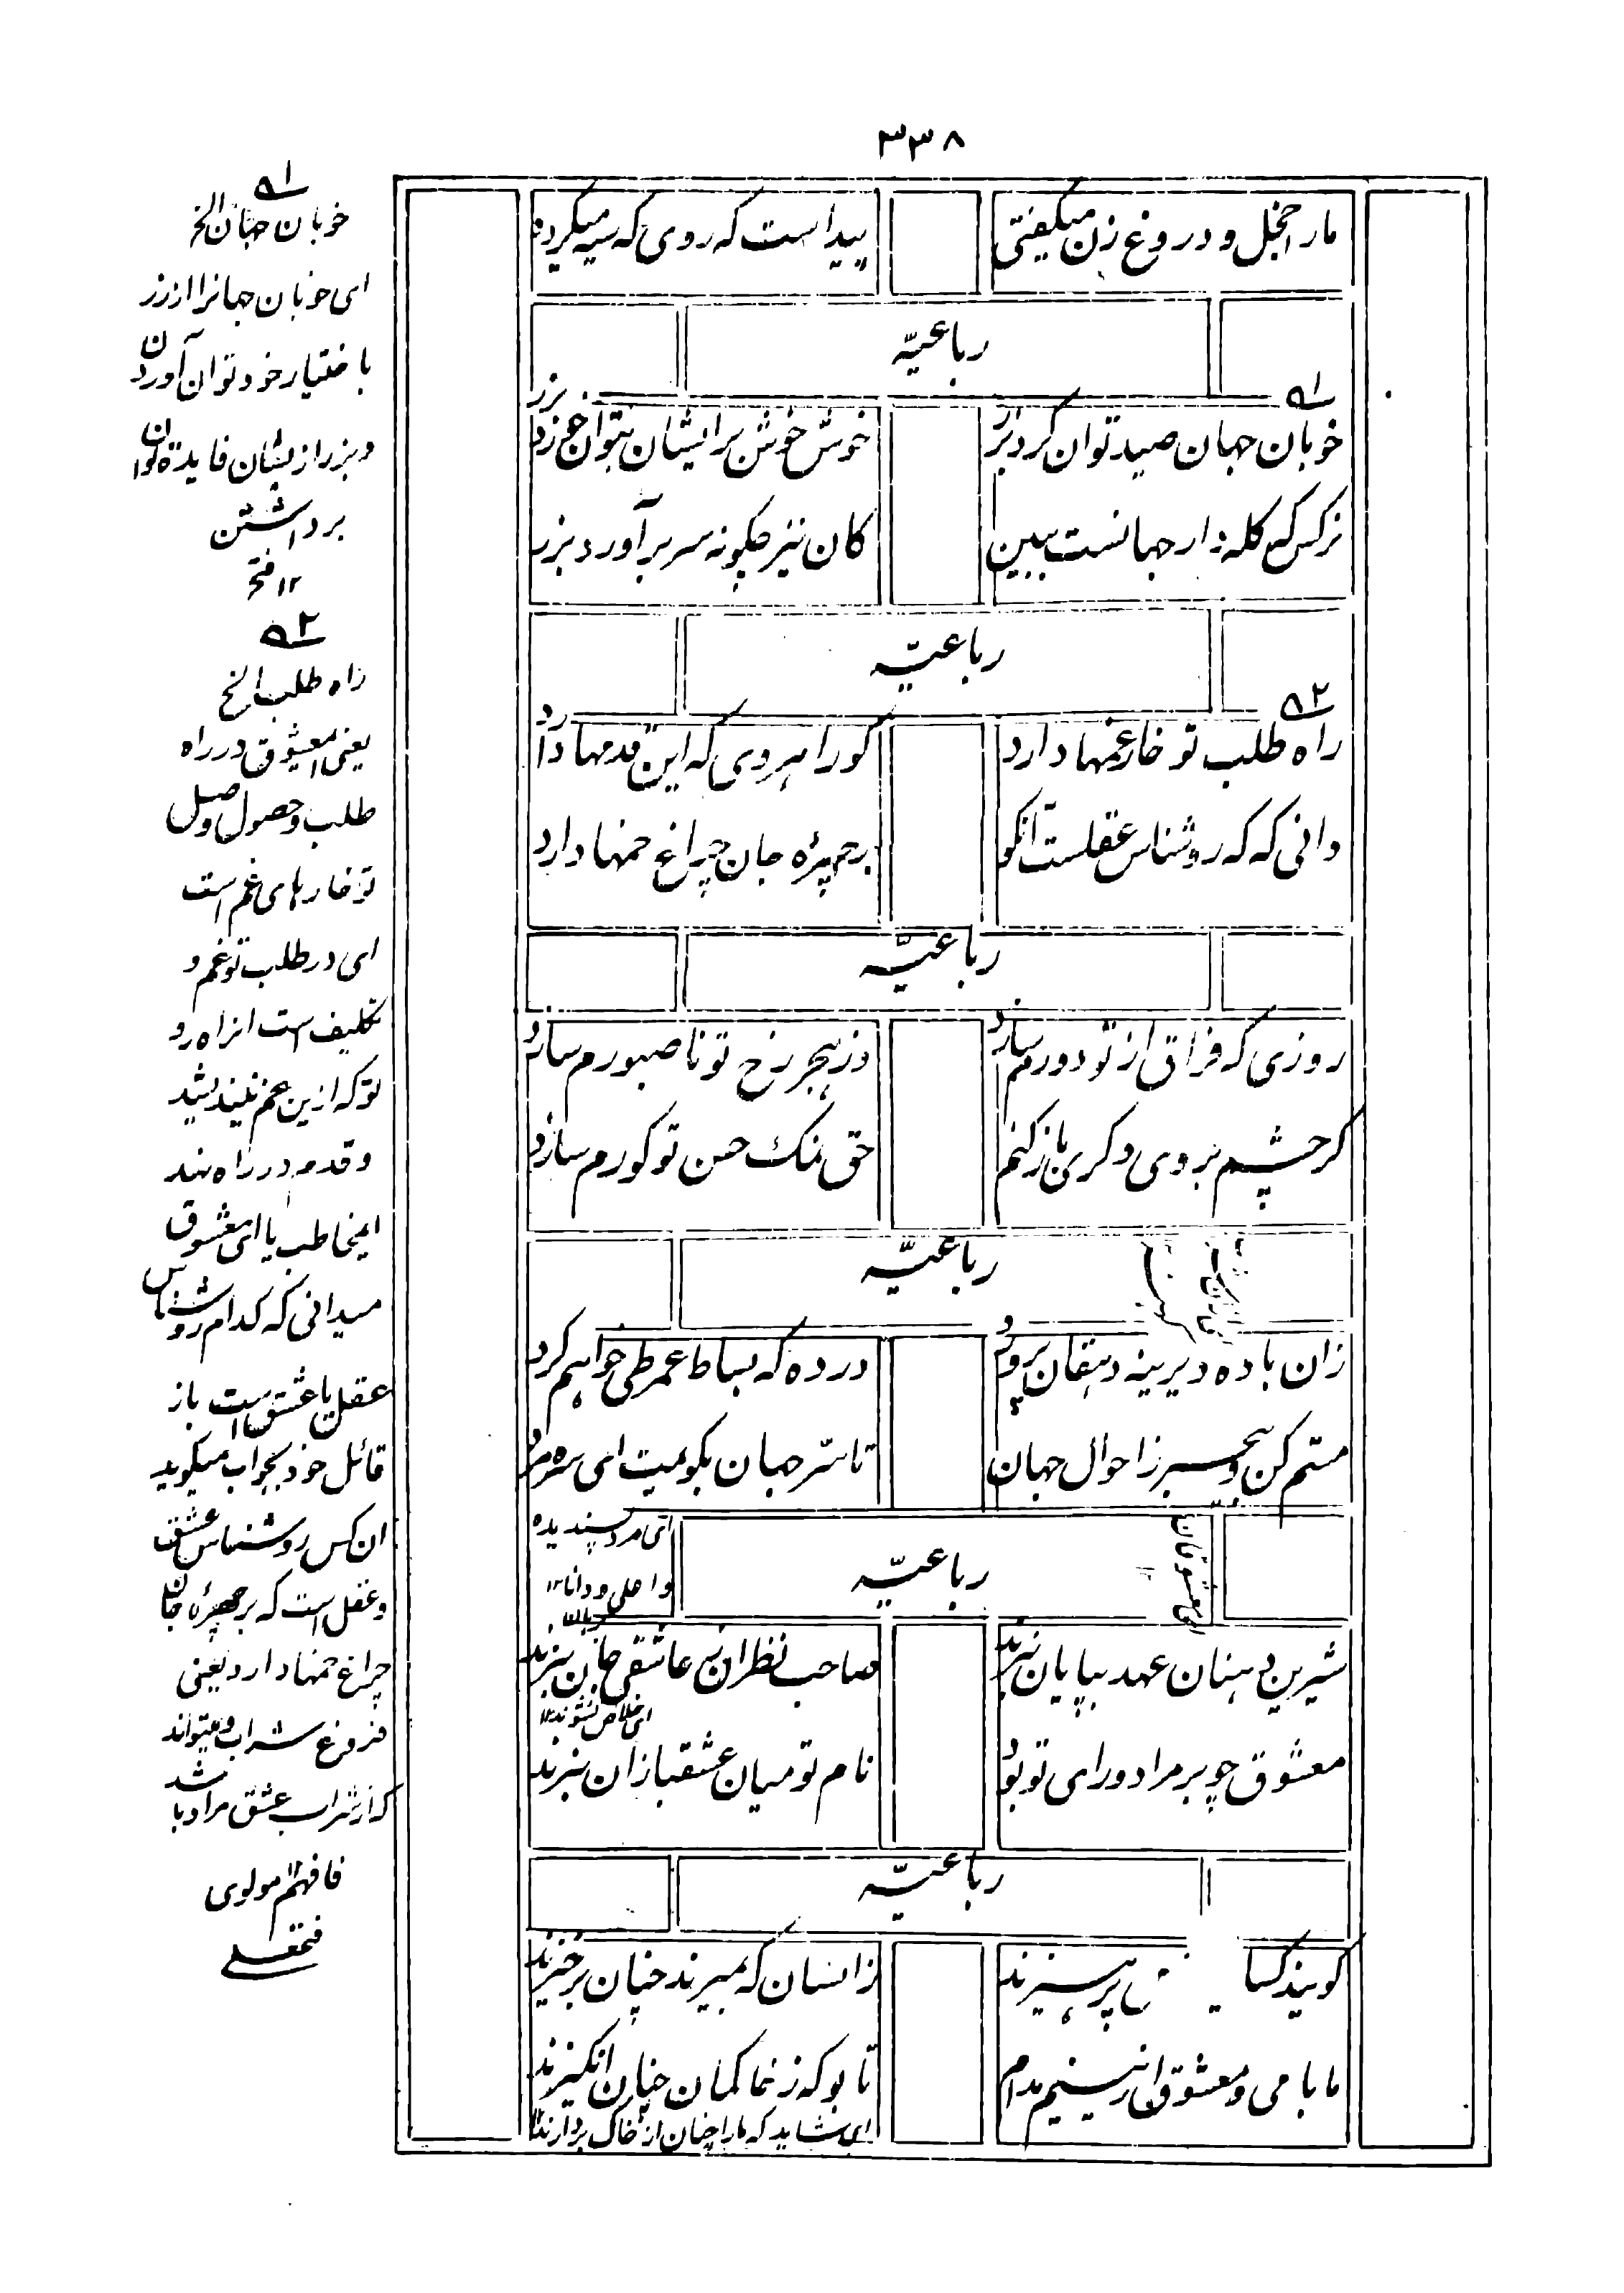 ۳۳۸
مارا خجل و دروغ زن میگفتی
پیداست که روی که سیه میگردد
رباعیّه
۱
خوبان جهان صید توان کرد بزر
خوش خوش بر ایشان بتوان خورد بزر
نرکس که کله دار جهانست ببین
کان نیز چگونه سر برآورد بزر
رباعیّه
۲
راه طلب تو خار غمها دارد
کو راهروی که این قدمها دارد
دانی که که روشناس عقلست آنکو
بر چهره جان چراغ غمها دارد
رباعیّه
روزی که فراق از تو دورم سازد
وز هجر رخ تو ناصبورم سازد
کر چشم بروی دکری باز کنم
حق نمک حسن تو کورم سازد
رباعیّه
زان باده دیرینه دهقان پرورد
در ده که بساط عمر طی خواهم کرد
مستم کن و بیخبر ز احوال جهان
تا سرّ جهان بکویمت ای سره مرد
ای مرد پسندیده
و اصلی و دانا ۱۲
رباعیّه
شیرین دهنان عهد بپایان نبرند
صاحب نظران ز عاشقی جان نبرند
ای خلاص نشوند ۱۲
معشوق چو بر مراد و رای تو بود
نام تو میان عشقبازان نبرند
رباعیّه
کویند کسا پرهیزند
زانسان که بمیرند چنان برخیزند
ما با می و معشوق ازینیم مدام
تا بو که ز خاکمان چنان انکیزند
ای شاید که مارا چنان از خاک بردارند ۱۲
۱
خوبان جهان الخ
ای خوبان جهانرا از زر
باختیار خود توان آوردن
و بزر از یشان فایده توان
برداشتن
۱۲ فتح
۲
راه طلب الخ
یعنی امعشوق در راه
طلب و حصول وصل
تو خارهای غم است
ای در طلب تو غم و
تکلیف است انراه رو
تو که ازین غم نیندیشد
و قدم در راه نهد
ایمخاطب یا ای معشوق
میدانی که کدام روشناس
عقل یا عشق است باز
قائل خود بجواب میکوید
ان کس روشناس عشق
و عقل است که بر چهرۀ جان
چراغ غمها دارد یعنی
فروغ شراب و میتواند
که از شراب عشق مراد باشد
فافهم ۱۲ مولوی
فتحعلی